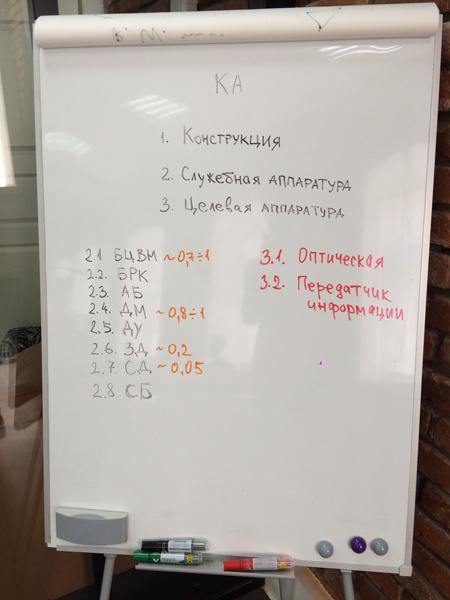 КА
1. Конструкция
2. Служебная аппаратура
3. Целевая аппаратура
2.1 БЦВМ ~0,7÷1
2.2. БРК
2.3. АБ
2.4. ДМ ~0,8÷1
2.5. ДУ
2.6. ЗД ~0,2
2.7. СД ~0,05
2.8. СБ
3.1. Оптическая
3.2. Передатчик
информации